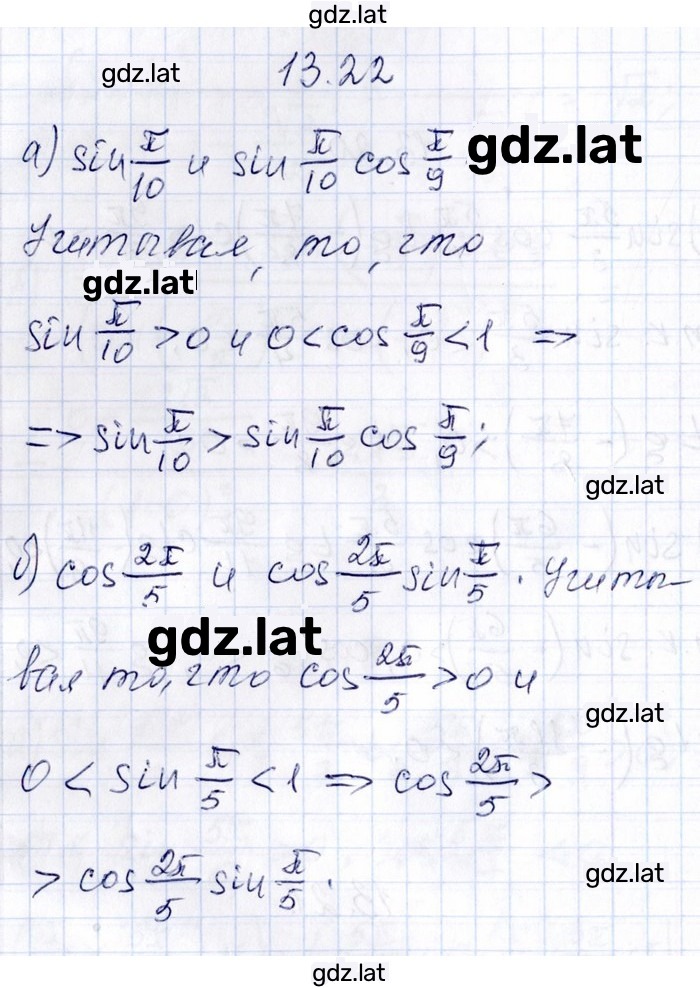 gdz.lat
gdz.lat 13.22
а) sin π/10 и sin π/10 cos π/9. gdz.lat
Учитывая, то, что
gdz.lat
sin π/10 > 0 и 0 < cos π/9 < 1 =>
=> sin π/10 > sin π/10 cos π/9;
gdz.lat
б) cos 2π/5 и cos 2π/5 sin π/5. Учиты-
gdz.lat
вая то, что cos 2π/5 > 0 и
gdz.lat
0 < sin π/5 < 1 => cos 2π/5 >
> cos 2π/5 sin π/5.
gdz.lat
gdz.lat